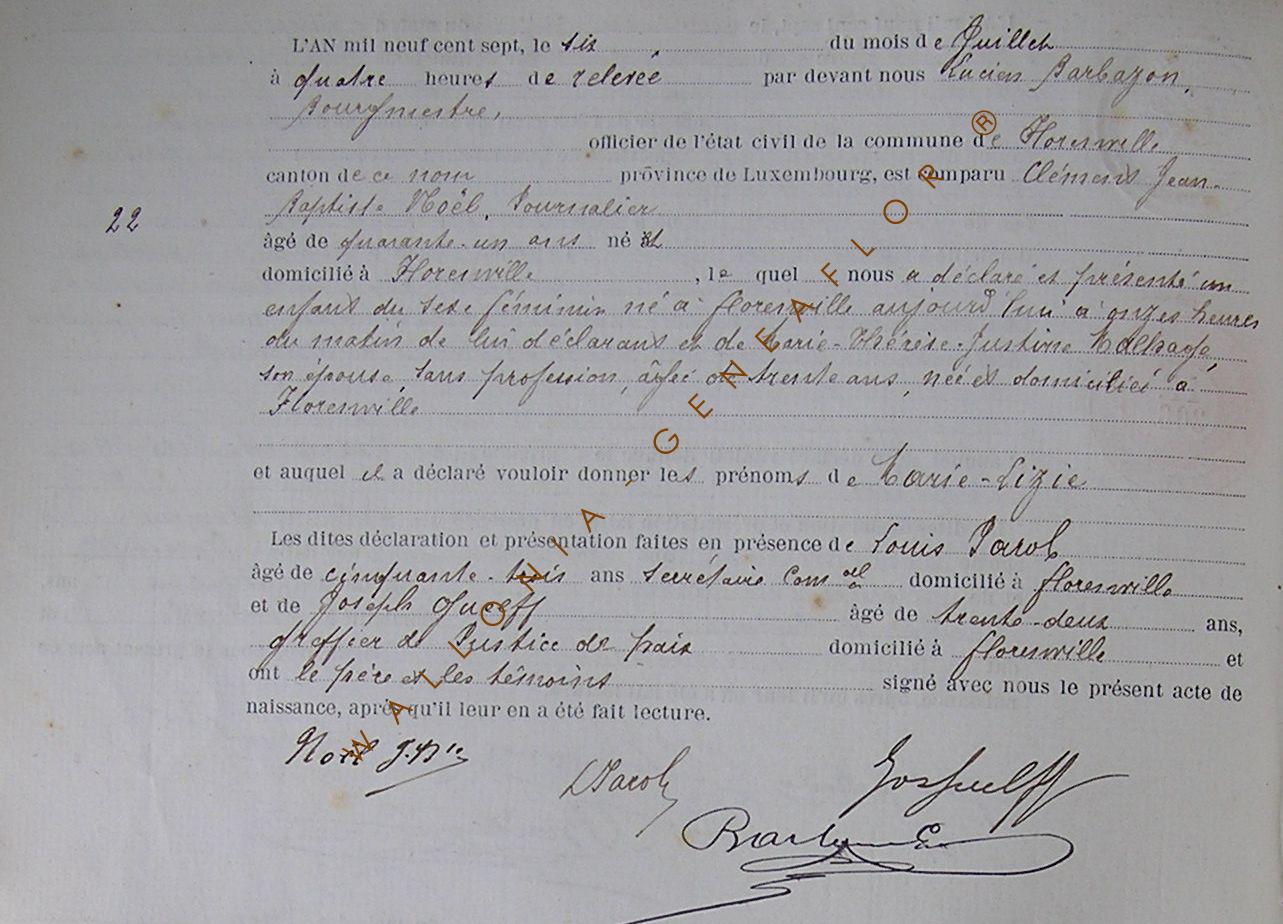 L'AN mil neuf cent sept, le six du mois de Juillet
à quatre heures de relevée par devant nous Lucien Barbazon,
Bourgmestre,
officier de l'état civil de la commune de Florenville
canton de ce nom province de Luxembourg, est comparu Clément Jean-
Baptiste Noël, Journalier
22
âgé de quarante-un ans né et
domicilié à Florenville, lequel nous a déclaré et présenté un
enfant du sexe féminin né à florenville aujourd'hui à onzes heures
du matin de lui déclarant et de Marie-Thérèse-Justine
son épouse, sans profession, âgée de trente ans, née et domiciliée à
Florenville
et auquel il a déclaré vouloir donner les prénoms de Marie-Lizie
Les dites déclaration et présentation faites en présence de Louis Parot
âgé de cinquante-trois ans secrétaire Com al domicilié à florenville
et de Joseph âgé de trente-deux ans,
greffier de Justice de paix domicilié à florenville et
ont le père et les témoins signé avec nous le présent acte de
naissance, après qu'il leur en a été fait lecture.
Noël J. Bte
WALLONIA, GENEAFLOR ®